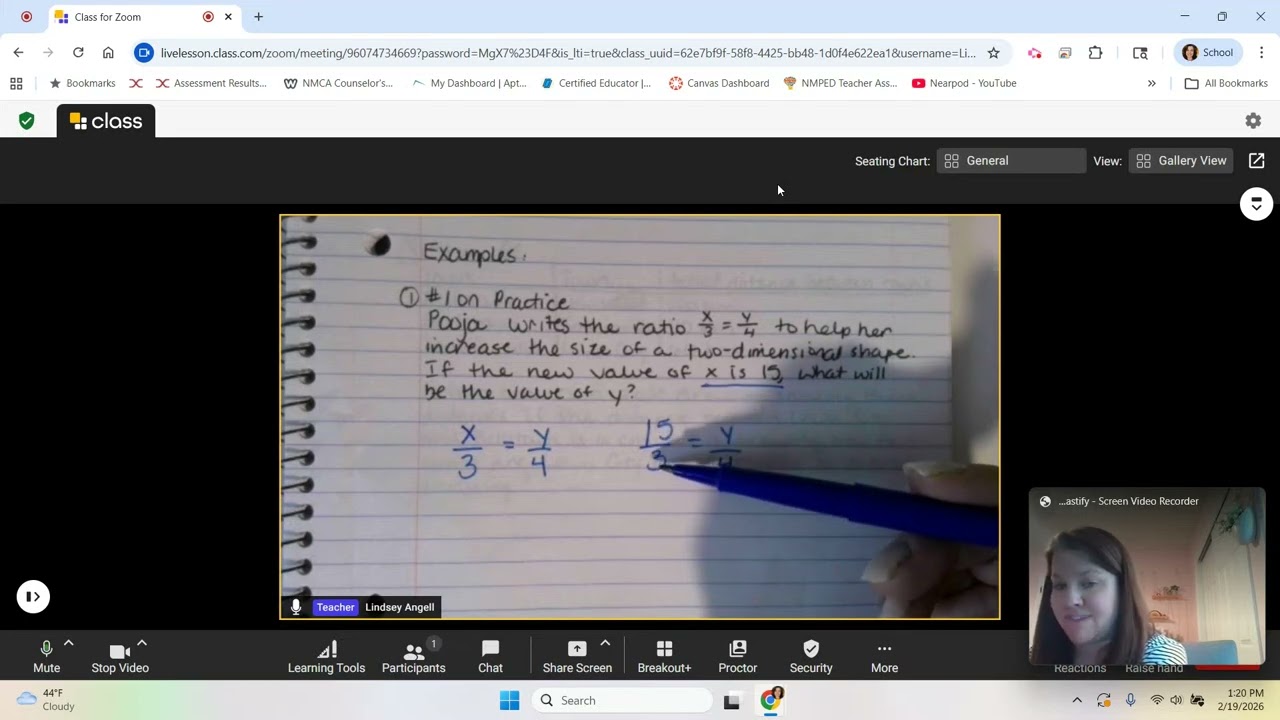 Class for Zoom
livelesson.class.com/zoom/meeting/96074734669?password=MqX7%23D4F&is_lti=true&class_uuid=62e7bf9f-58f8-4425-bb48-1d0f4e622ea1&username=Li...
School
Bookmarks
Assessment Results...
NMCA Counselor's...
My Dashboard | Apt...
Certified Educator |...
Canvas Dashboard
NMPED Teacher Ass...
Nearpod - YouTube
»
All Bookmarks
class
Seating Chart: General View: Gallery View
Examples:
① #1 on Practice
Pooja writes the ratio x/3 = y/4 to help her
increase the size of a two-dimensional shape.
If the new value of x is 15, what will
be the value of y?
x/3 = y/4 15/3 = y/4
Teacher Lindsey Angell
...astify - Screen Video Recorder
Mute
Stop Video
Learning Tools
Participants 1
Chat
Share Screen
Breakout+
Proctor
Security
More
Reactions
Raise hand
44°F
Cloudy
Search
1:20 PM
2/19/2026